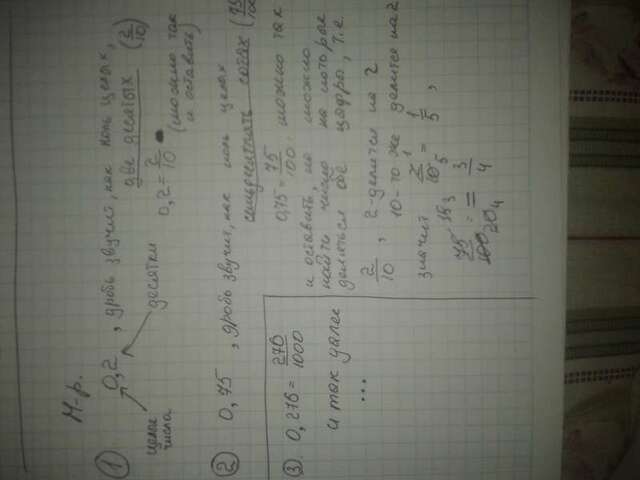 Н-р.
① 0,2 , дробь звучит, как ноль целых,
две десятых (2/10)
целые числа
десятки
0,2 = 2/10 (можно так и оставить)
② 0,75 , дробь звучит, как ноль целых
семьдесят пять сотых (75/100
0,75 = 75/100 . можно так
и оставить, но можно
найти число на которое
делиться обе цифры, т.е.
2/10 , 2 - делится на 2
10 - то же делится на 2
значит 2/10 1 5 = 1/5 ,
75/100 15 3 20 4 = 3/4
③ 0,276 = 276/1000
и так далее
...